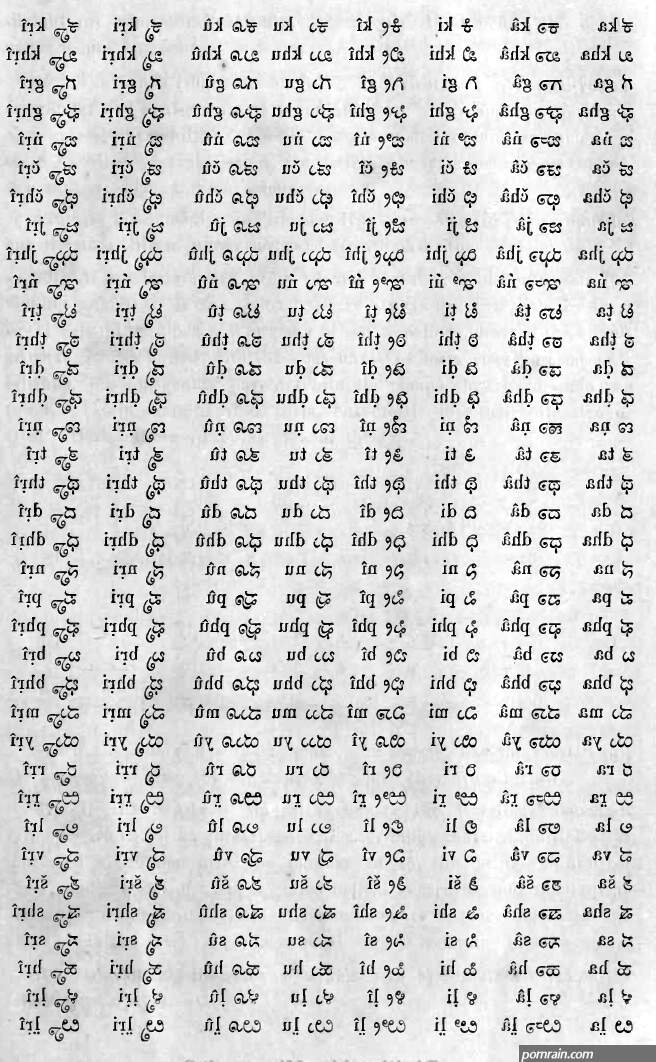 ಕ ka ಕಾ kâ ಕಿ ki ಕೀ kî ಕು ku ಕೂ kû ಕೃ kṛi ಕೄ kṛî
ಖ kha ಖಾ khâ ಖಿ khi ಖೀ khî ಖು khu ಖೂ khû ಖೃ khṛi ಖೄ khṛî
ಗ ga ಗಾ gâ ಗಿ gi ಗೀ gî ಗು gu ಗೂ gû ಗೃ gṛi ಗೄ gṛî
ಘ gha ಘಾ ghâ ಘಿ ghi ಘೀ ghî ಘು ghu ಘೂ ghû ಘೃ ghṛi ಘೄ ghṛî
ಙ ṅa ಙಾ ṅâ ಙಿ ṅi ಙೀ ṅî ಙು ṅu ಙೂ ṅû ಙೃ ṅṛi ಙೄ ṅṛî
ಚ ča ಚಾ čâ ಚಿ či ಚೀ čî ಚು ču ಚೂ čû ಚೃ čṛi ಚೄ čṛî
ಛ čha ಛಾ čhâ ಛಿ čhi ಛೀ čhî ಛು čhu ಛೂ čhû ಛೃ čhṛi ಛೄ čhṛî
ಜ ja ಜಾ jâ ಜಿ ji ಜೀ jî ಜು ju ಜೂ jû ಜೃ jṛi ಜೄ jṛî
ಝ jha ಝಾ jhâ ಝಿ jhi ಝೀ jhî ಝು jhu ಝೂ jhû ಝೃ jhṛi ಝೄ jhṛî
ಞ ña ಞಾ ñâ ಞಿ ñi ಞೀ ñî ಞು ñu ಞೂ ñû ಞೃ ñṛi ಞೄ ñṛî
ಟ ṭa ಟಾ ṭâ ಟಿ ṭi ಟೀ ṭî ಟು ṭu ಟೂ ṭû ಟೃ ṭṛi ಟೄ ṭṛî
ಠ ṭha ಠಾ ṭhâ ಠಿ ṭhi ಠೀ ṭhî ಠು ṭhu ಠೂ ṭhû ಠೃ ṭhṛi ಠೄ ṭhṛî
ಡ ḍa ಡಾ ḍâ ಡಿ ḍi ಡೀ ḍî ಡು ḍu ಡೂ ḍû ಡೃ ḍṛi ಡೄ ḍṛî
ಢ ḍha ಢಾ ḍhâ ಢಿ ḍhi ಢೀ ḍhî ಢು ḍhu ಢೂ ḍhû ಢೃ ḍhṛi ಢೄ ḍhṛî
ಣ ṇa ಣಾ ṇâ ಣಿ ṇi ಣೀ ṇî ಣು ṇu ಣೂ ṇû ಣೃ ṇṛi ಣೄ ṇṛî
ತ ta ತಾ tâ ತಿ ti ತೀ tî ತು tu ತೂ tû ತೃ tṛi ತೄ tṛî
ಥ tha ಥಾ thâ ಥಿ thi ಥೀ thî ಥು thu ಥೂ thû ಥೃ thṛi ಥೄ thṛî
ದ da ದಾ dâ ದಿ di ದೀ dî ದು du ದೂ dû ದೃ dṛi ದೄ dṛî
ಧ dha ಧಾ dhâ ಧಿ dhi ಧೀ dhî ಧು dhu ಧೂ dhû ಧೃ dhṛi ಧೄ dhṛî
ನ na ನಾ nâ ನಿ ni ನೀ nî ನು nu ನೂ nû ನೃ nṛi ನೄ nṛî
ಪ pa ಪಾ pâ ಪಿ pi ಪೀ pî ಪು pu ಪೂ pû ಪೃ pṛi ಪೄ pṛî
ಫ pha ಫಾ phâ ಫಿ phi ಫೀ phî ಫು phu ಫೂ phû ಫೃ phṛi ಫೄ phṛî
ಬ ba ಬಾ bâ ಬಿ bi ಬೀ bî ಬು bu ಬೂ bû ಬೃ bṛi ಬೄ bṛî
ಭ bha ಭಾ bhâ ಭಿ bhi ಭೀ bhî ಭು bhu ಭೂ bhû ಭೃ bhṛi ಭೄ bhṛî
ಮ ma ಮಾ mâ ಮಿ mi ಮೀ mî ಮು mu ಮೂ mû ಮೃ mṛi ಮೄ mṛî
ಯ ya ಯಾ yâ ಯಿ yi ಯೀ yî ಯು yu ಯೂ yû ಯೃ yṛi ಯೄ yṛî
ರ ra ರಾ râ ರಿ ri ರೀ rî ರು ru ರೂ rû ರೃ rṛi ರೄ rṛî
ಱ r̤a ಱಾ r̤â ಱಿ r̤i ಱೀ r̤î ಱು r̤u ಱೂ r̤û ಱೃ r̤ṛi ಱೄ r̤ṛî
ಲ la ಲಾ lâ ಲಿ li ಲೀ lî ಲು lu ಲೂ lû ಲೃ lṛi ಲೄ lṛî
ವ va ವಾ vâ ವಿ vi ವೀ vî ವು vu ವೂ vû ವೃ vṛi ವೄ vṛî
ಶ ša ಶಾ šâ ಶಿ ši ಶೀ šî ಶು šu ಶೂ šû ಶೃ šṛi ಶೄ šṛî
ಷ sha ಷಾ shâ ಷಿ shi ಷೀ shî ಷು shu ಷೂ shû ಷೃ shṛi ಷೄ shṛî
ಸ sa ಸಾ sâ ಸಿ si ಸೀ sî ಸು su ಸೂ sû ಸೃ sṛi ಸೄ sṛî
ಹ ha ಹಾ hâ ಹಿ hi ಹೀ hî ಹು hu ಹೂ hû ಹೃ hṛi ಹೄ hṛî
ಳ ḷa ಳಾ ḷâ ಳಿ ḷi ಳೀ ḷî ಳು ḷu ಳೂ ḷû ಳೃ ḷṛi ಳೄ ḷṛî
ೞ l̤a ೞಾ l̤â ೞಿ l̤i ೞೀ l̤î ೞು l̤u ೞೂ l̤û ೞೃ l̤ṛi ೞೄ l̤ṛî
pomrain.com